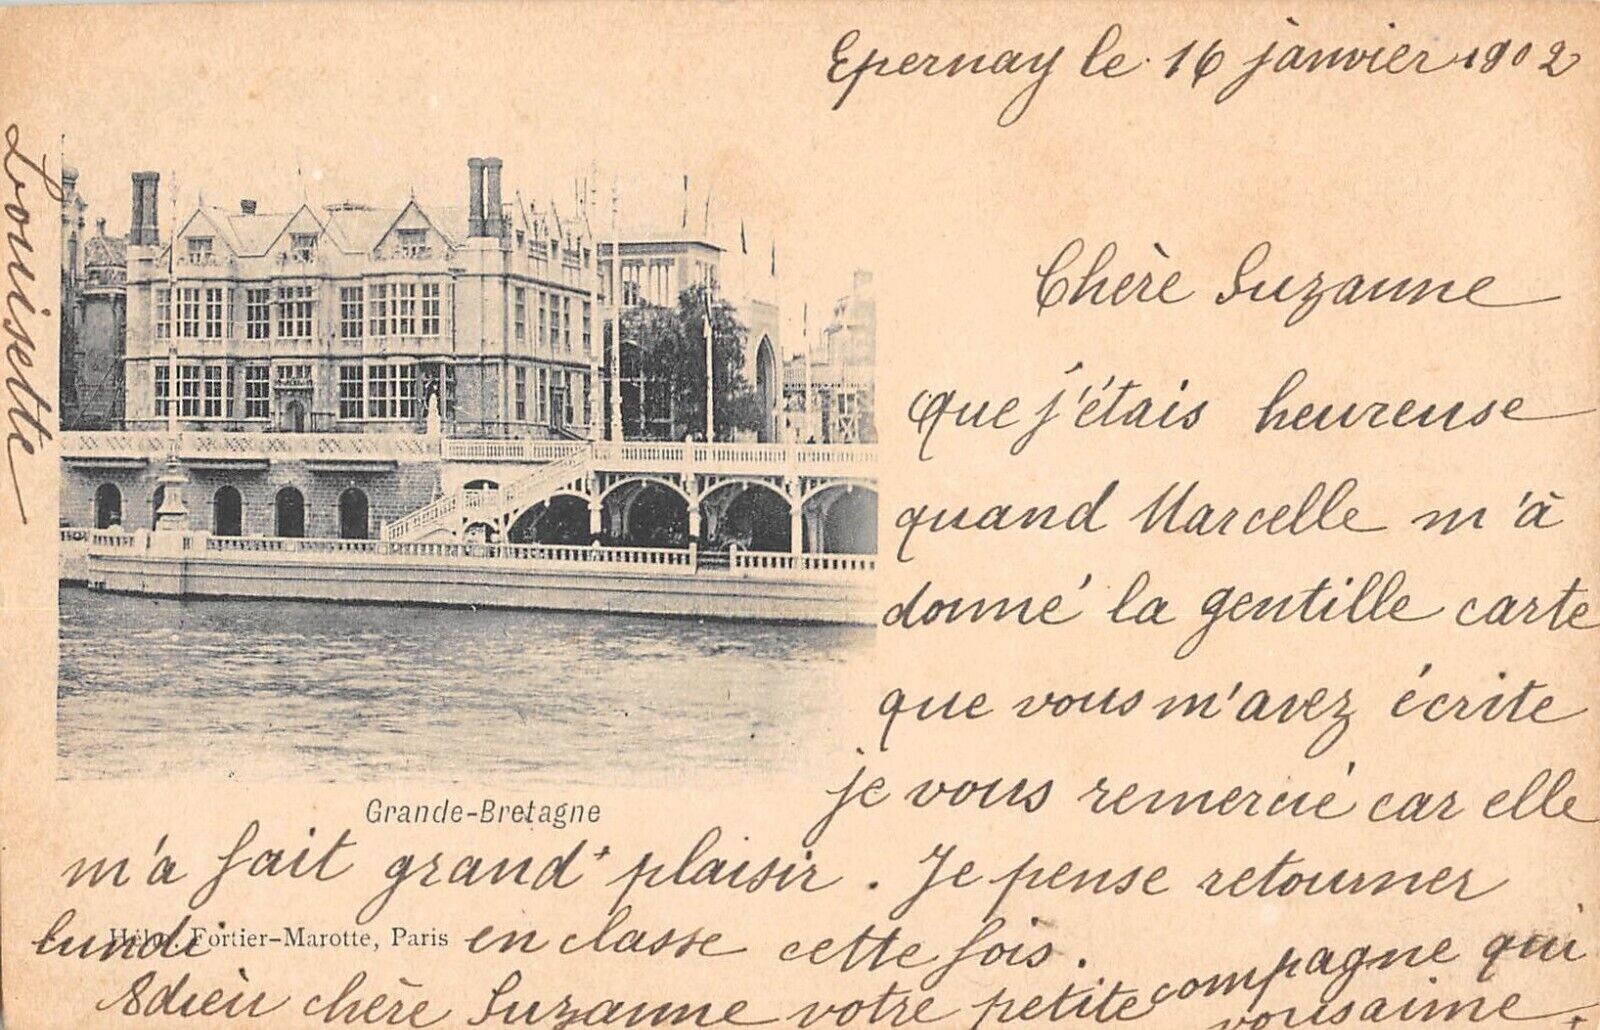 Epernay le 16 jànvier 1902
Chère Suzanne
que j'étais heureuse
quand Marcelle m'à
donné la gentille carte
que vous m'avez écrite
je vous remercié car elle
m'a fait grand plaisir. Je pense retourner
lundi en classe cette fois.
Adieu chère Suzanne votre petite compagne qui
vous aime.
Louisette
Grande-Bretagne
Hélio. Fortier-Marotte, Paris